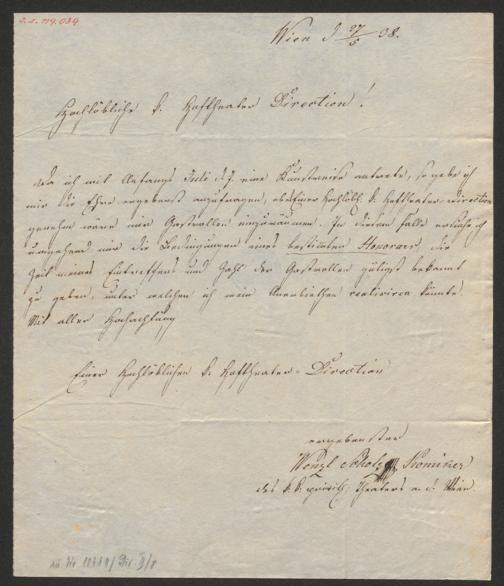 Wien d 27/5 38.
Hochlöbliche k. Hoftheater Direction!
Da ich mit Anfangs Juli d. J. eine Kunstreise antrete, so gebe ich
mir die Ehre ergebenst anzufragen, ob es Einer Hochlöbl. k. Hoftheater Direction
genehm wäre mir Gastrollen einzuräumen. In diesem Falle ersuche ich
umgehend mir die Bedingungen eines bestimmten Honorars, die
Zeit meines Eintreffens und Zahl der Gastrollen gütigst bekannt
zu geben, unter welchen ich mein Anerbiethen realisiren könnte.
Mit aller Hochachtung
Einer Hochlöblichen k. Hoftheater-Direction
ergebenster
Wenzl Scholz Komiker
des k. k. privil. Theaters a. d. Wien